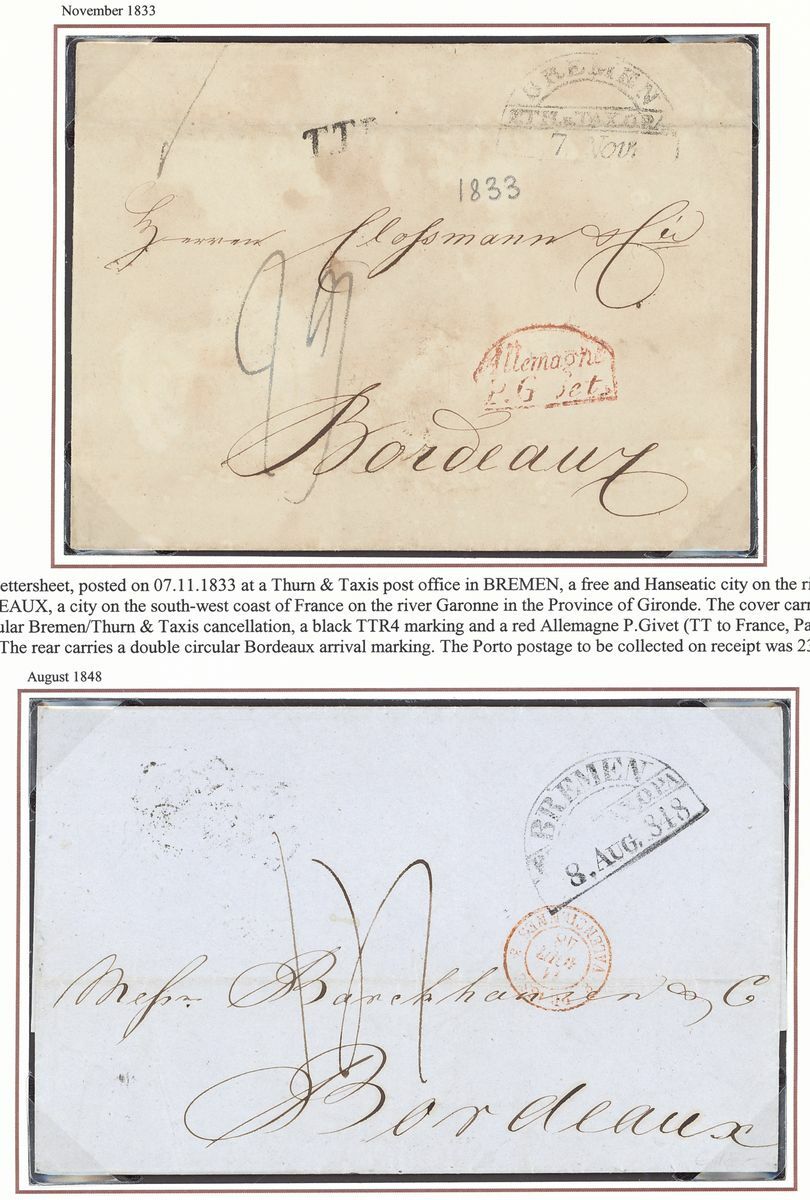 November 1833
BREMEN
F.TH.& TAX.O.P.A
7 Nov.
1833
Herren Clossmann & Cie
23
Allemagne
P.G vets
Bordeaux
ettersheet, posted on 07.11.1833 at a Thurn & Taxis post office in BREMEN, a free and Hanseatic city on the ri
EAUX, a city on the south-west coast of France on the river Garonne in the Province of Gironde. The cover carr
ular Bremen/Thurn & Taxis cancellation, a black TTR4 marking and a red Allemagne P.Givet (TT to France, Pa
The rear carries a double circular Bordeaux arrival marking. The Porto postage to be collected on receipt was 23
August 1848
BREMEN
8. AUG. 848
Messrs. Barckhausen & C
Bordeaux